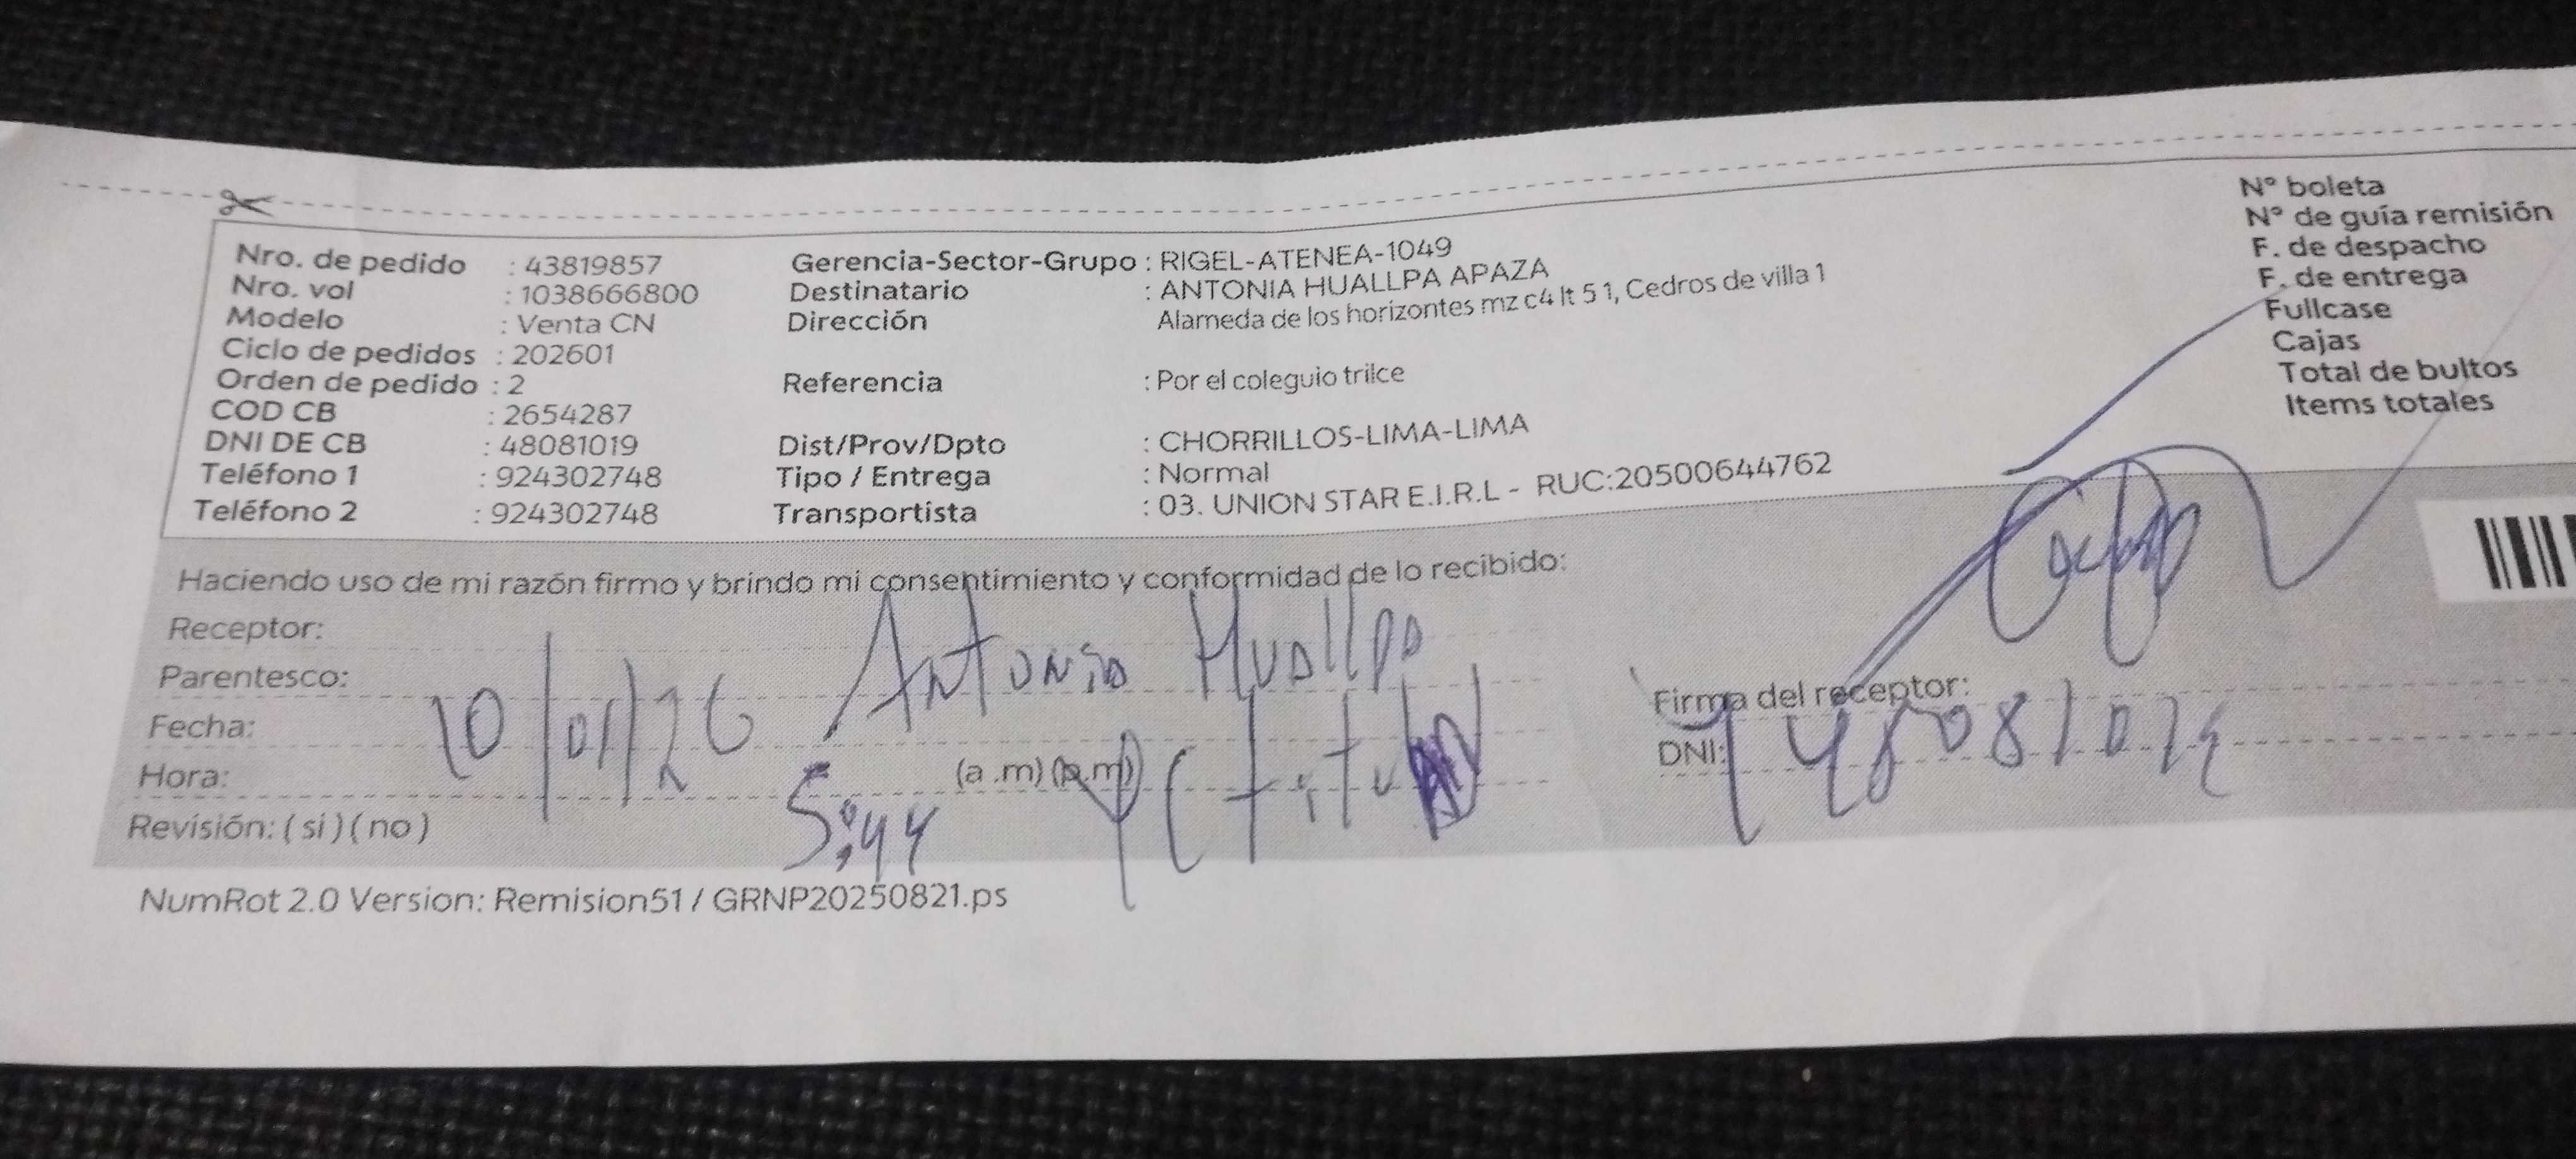 Nro. de pedido : 43819857
Nro. vol : 1038666800
Modelo : Venta CN
Ciclo de pedidos : 202601
Orden de pedido : 2
COD CB : 2654287
DNI DE CB : 48081019
Teléfono 1 : 924302748
Teléfono 2 : 924302748
Gerencia-Sector-Grupo : RIGEL-ATENEA-1049
Destinatario : ANTONIA HUALLPA APAZA
Dirección Alameda de los horizontes mz c4 lt 5 1, Cedros de villa 1
Referencia : Por el coleguio trilce
Dist/Prov/Dpto : CHORRILLOS-LIMA-LIMA
Tipo / Entrega : Normal
Transportista : 03. UNION STAR E.I.R.L - RUC:20500644762
N° boleta
N° de guía remisión
F. de despacho
F. de entrega
Fullcase
Cajas
Total de bultos
Items totales
Haciendo uso de mi razón firmo y brindo mi consentimiento y conformidad de lo recibido:
Receptor: Antonia Huallpa
Parentesco:
Fecha: 10/01/26
Hora: 5:44 (a.m) (p.m)
Revisión: ( si ) ( no )
Firma del receptor:
DNI: 48081019
NumRot 2.0 Version: Remision51 / GRNP20250821.ps